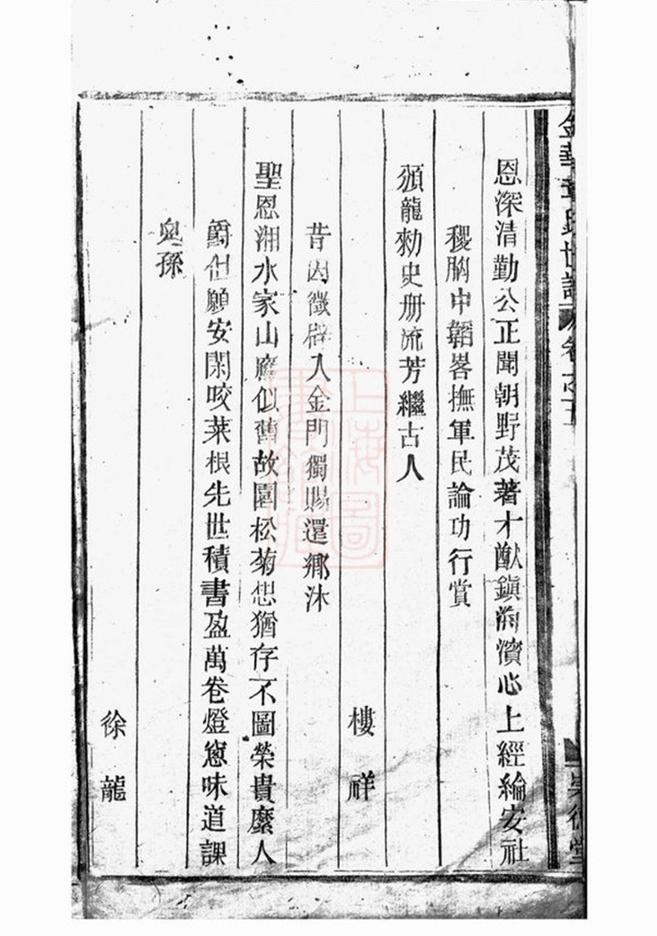 恩深清勤公正聞朝野茂著才猷鎮海濱心上經綸安社
稷胸中韜畧撫軍民論功行賞
頒龍勑史册流芳繼古人
樓祥
昔因徵辟入金門獨賜還鄉沐
聖恩湘水家山應似舊故園松菊想猶存不圖榮貴縻人
爵但願安閑咬菜根先世積書盈萬卷燈窓味道課
兒孫
徐龍